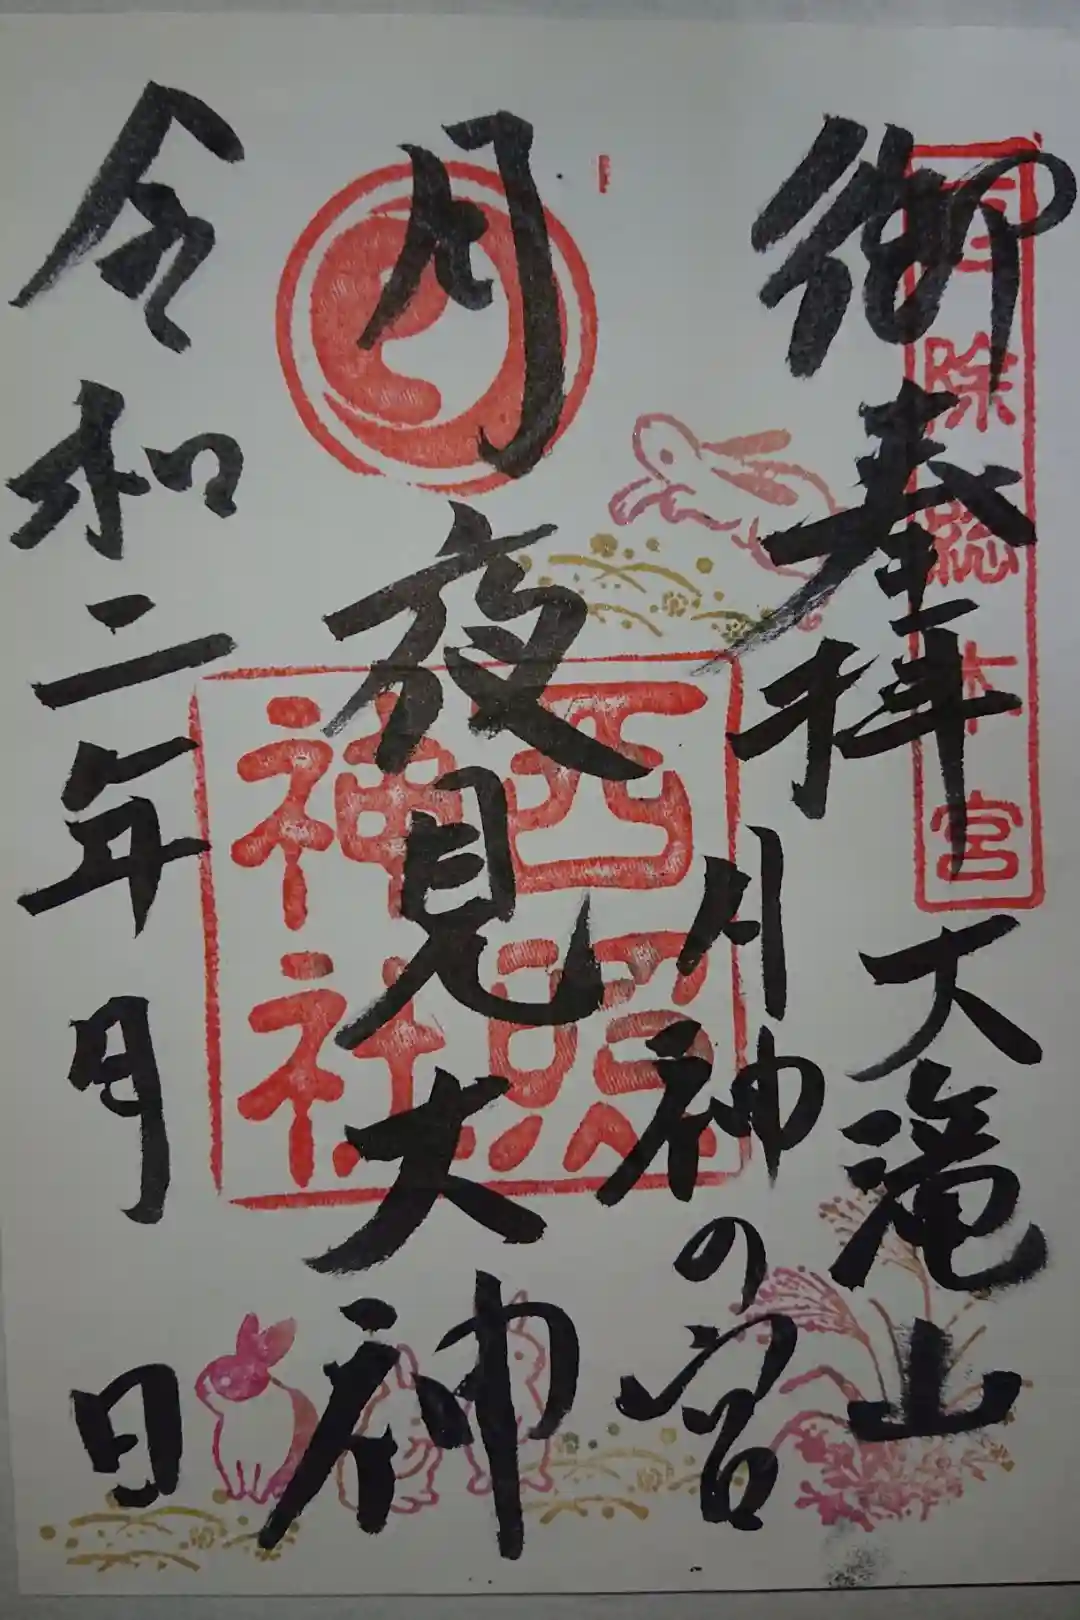 御奉拝
方除総本宮
大滝山
月神の宮
月夜見大神
西照
神社
令和二年 月 日